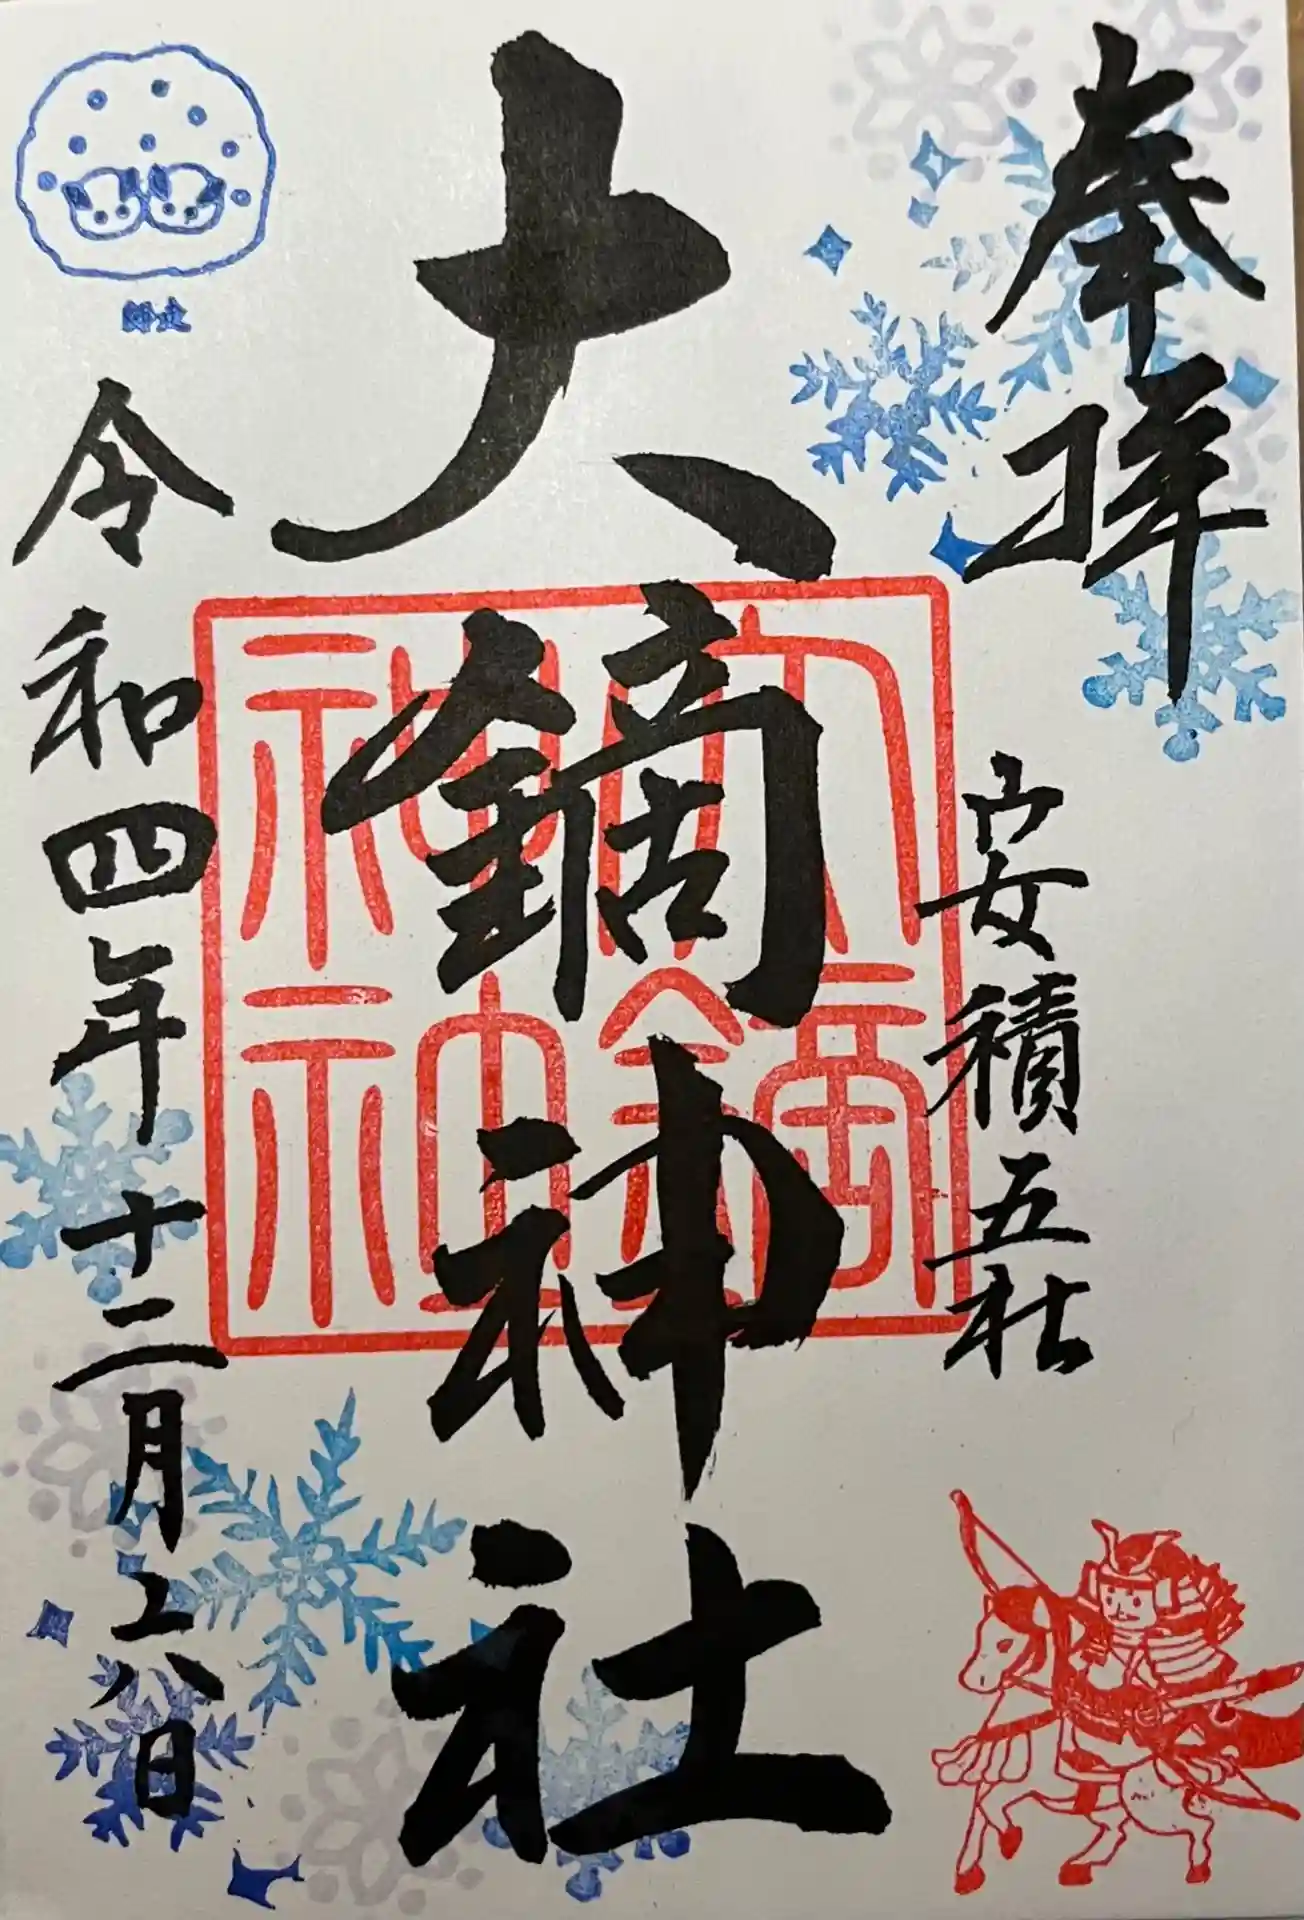 奉拝
安積五社
大鏑神社
大鏑神社
令和四年十二月二八日
師走